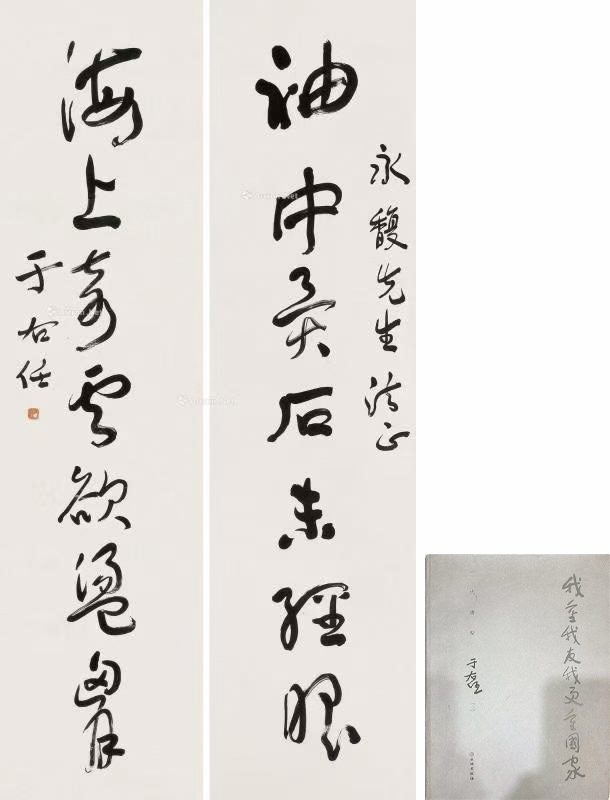 永馥先生法正
袖中異石未經眼
海上奇雲欲盪胷
于右任
我愛我友我更愛國家
于右任